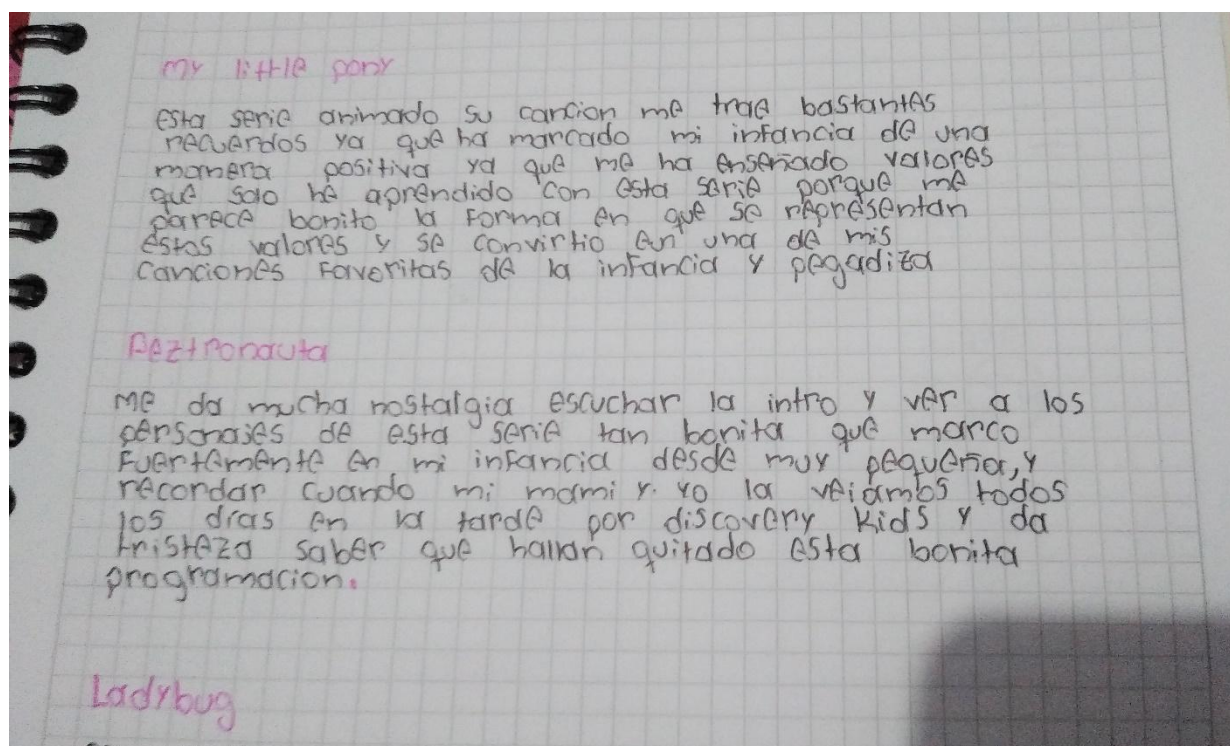 my little pony
esta serie animado su cancion me trae bastantes
recuerdos ya que ha marcado mi infancia de una
manera positiva ya que me ha enseñado valores
que solo he aprendido con esta serie porque me
parece bonito la forma en que se representan
estos valores y se convirtio en una de mis
canciones favoritas de la infancia y pegadiza
Peztronauta
me da mucha nostalgia escuchar la intro y ver a los
personajes de esta serie tan bonita que marco
fuertemente en mi infancia desde muy pequeña, y
recordar cuando mi mami y yo la veiamos todos
los dias en la tarde por discovery kids y da
tristeza saber que hallan quitado esta bonita
programacion.
Ladybug